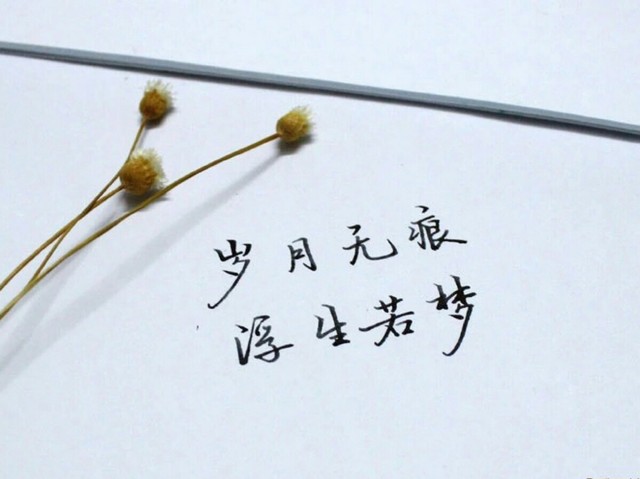 岁月无痕
浮生若梦